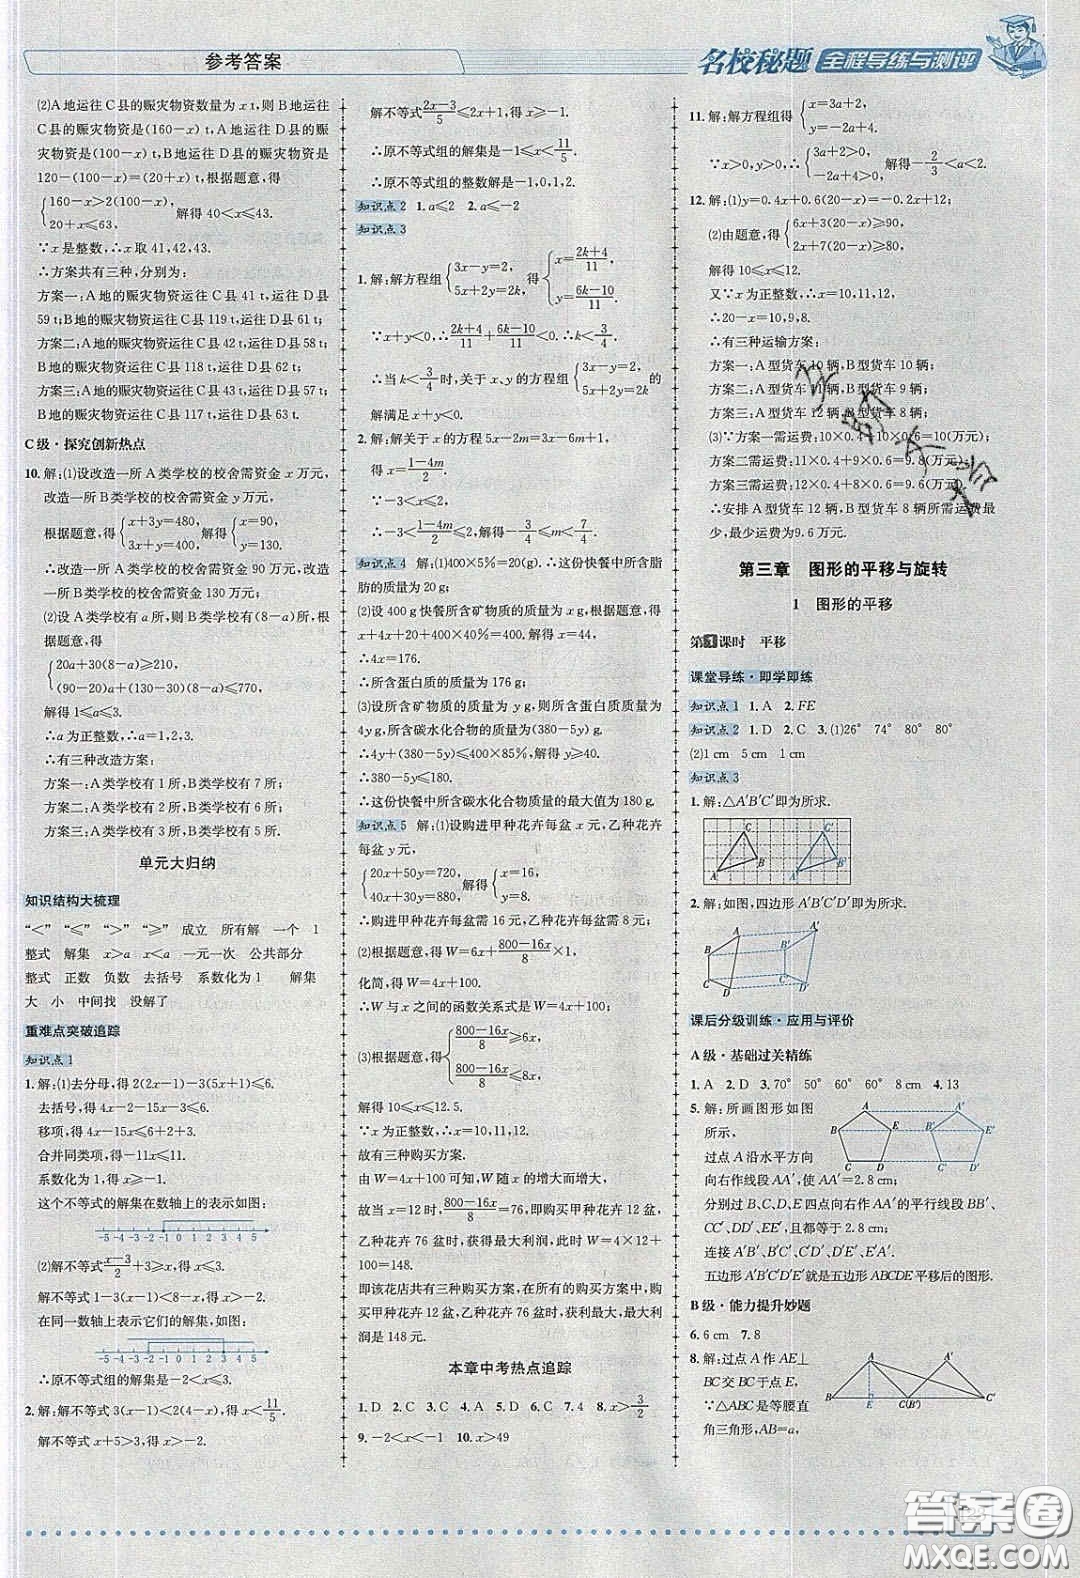 参考答案
名校秘题 全程导练与测评
(2)A地运往C县的赈灾物资数量为x t,则B地运往
C县的赈灾物资是(160-x) t,A地运往D县的赈
灾物资是(100-x) t,B地运往D县的赈灾物资是
120-(100-x)=(20+x) t,根据题意,得
{160-x>2(100-x),
20+x≤63, 解得40<x≤43.
∵x是整数,∴x取41,42,43.
∴方案共有三种,分别为:
方案一:A地的赈灾物资运往C县41 t,运往D县
59 t;B地的赈灾物资运往C县119 t,运往D县61 t;
方案二:A地的赈灾物资运往C县42 t,运往D县58 t;
B地的赈灾物资运往C县118 t,运往D县62 t;
方案三:A地的赈灾物资运往C县43 t,运往D县57 t;
B地的赈灾物资运往C县117 t,运往D县63 t.
C级·探究创新热点
10.解:(1)设改造一所A类学校的校舍需资金x万元,
改造一所B类学校的校舍需资金y万元,
根据题意,得{x+3y=480, 3x+y=400. 解得{x=90, y=130.
∴改造一所A类学校的校舍需资金90万元,改造
一所B类学校的校舍需资金130万元;
(2)设A类学校有a所,则B类学校有(8-a)所,根
据题意,得
{20a+30(8-a)≥210,
(90-20)a+(130-30)(8-a)≤770,
解得1≤a≤3.
∴a为正整数,∴a=1,2,3.
∴有三种改造方案:
方案一:A类学校有1所,B类学校有7所;
方案二:A类学校有2所,B类学校有6所;
方案三:A类学校有3所,B类学校有5所.
单元大归纳
知识结构大梳理
“<” “≤” “>” “≥” 成立 所有解 一个 1
整式 解集 x>a x<a 一元一次 公共部分
整式 正数 负数 去括号 系数化为1 解集
大 小 中间找 没解了
重难点突破追踪
知识点1
1.解:(1)去分母,得2(2x-1)-3(5x+1)≤6.
去括号,得4x-2-15x-3≤6.
移项,得4x-15x≤6+2+3.
合并同类项,得-11x≤11.
系数化为1,得x≥-1.
这个不等式的解集在数轴上的表示如图:
-5 -4 -3 -2 -1 0 1 2 3 4 5
(2)解不等式(x-3)/2+3≥x,得x≤3.
解不等式1-3(x-1)<8-x,得x>-2.
在同一数轴上表示它们的解集,如图:
-5 -4 -3 -2 -1 0 1 2 3 4 5
∴原不等式组的解集是-2<x≤3.
2.解:解不等式3(x-1)<2(4-x),得x<11/5.
解不等式x+5>3,得x>-2.
解不等式(2x-3)/5≤2x+1,得x≥-1.
∴原不等式组的解集是-1≤x<11/5.
∴原不等式组的整数解是-1,0,1,2.
知识点2 1.a≤2 2.a≤-2
知识点3
1.解:解方程组{3x-y=2, 5x+2y=2k, 得{x=(2k+4)/11, y=(6k-10)/11.
∵x+y<0,∴(2k+4)/11+(6k-10)/11<0,∴k<3/4.
∴当k<3/4时,关于x、y的方程组{3x-y=2, 5x+2y=2k的
解满足x+y<0.
2.解:解关于x的方程5x-2m=3x-6m+1,
得x=(1-4m)/2.
∵-3<x≤2,
∴-3<(1-4m)/2≤2,解得-3/4≤m<7/4.
知识点4 解:(1)400×5%=20(g).∴这份快餐中所含脂
肪的质量为20 g;
(2)设400 g快餐所含矿物质的质量为x g,根据题意得
x+4x+20+400×40%=400.解得x=44,
∴4x=176.
∴所含蛋白质的质量为176 g;
(3)设所含矿物质的质量为y g,则所含蛋白质的质量为
4y g,∴所含碳水化合物的质量为(380-5y) g.
∴4y+(380-5y)≤400×85%,解得y≥40.
∴380-5y≤180,
∴这份快餐中所含碳水化合物质量的最大值为180 g.
知识点5 解:(1)设购进甲种花卉每盆x元,乙种花卉
每盆y元,
{20x+50y=720, 40x+30y=880, 解得{x=16, y=8.
∴购进甲种花卉每盆需16元,乙种花卉每盆需8元;
(2)根据题意,得W=6x+(800-16x)/8×1,
化简,得W=4x+100,
∴W与x之间的函数关系式是W=4x+100;
(3)根据题意,得{(800-16x)/8≥6x, (800-16x)/8≤8x,
解得10≤x≤12.5.
∵x为正整数,∴x=10,11,12.
故有三种购买方案.
由W=4x+100可知,W随x的增大而增大,
故当x=12时,(800-16x)/8=76,即购买甲种花卉12盆,
乙种花卉76盆时,获得最大利润,此时W=4×12
+100=148.
即该花店共有三种购买方案,在所有的购买方案中,购
买甲种花卉12盆,乙种花卉76盆时,获利最大,最大利
润是148元.
本章中考热点追踪
1.D 2.C 3.C 4.A 5.C 6.C 7.4 8.x>3/2
9.-2<x<-1 10.x>49
11.解:解方程组得{x=3a+2, y=-2a+4.
∵x>0,y>0,∴{3a+2>0, -2a+4>0. 解得-2/3<a<2.
12.解:(1)y=0.4x+0.6(20-x)=-0.2x+12;
(2)由题意,得{6x+3(20-x)≥90, 2x+7(20-x)≥80,
解得10≤x≤12.
又∵x为正整数,∴x=10,11,12,
∴20-x=10,9,8.
∴有三种运输方案:
方案一:A型货车10辆,B型货车10辆;
方案二:A型货车11辆,B型货车9辆;
方案三:A型货车12辆,B型货车8辆;
(3)∵方案一需运费:10×0.4+10×0.6=10(万元);
方案二需运费:11×0.4+9×0.6=9.8(万元);
方案三需运费:12×0.4+8×0.6=9.6(万元);
∴安排A型货车12辆,B型货车8辆所需运费最
少,最少运费为9.6万元.
第三章 图形的平移与旋转
1 图形的平移
第1课时 平移
课堂导练·即学即练
知识点1 1.A 2.FE
知识点2 1.D 2.C 3.(1)26° 74° 80° 80°
(2)1 cm 5 cm 1 cm
知识点3
1.解:△A′B′C′即为所求.
C C′
B B′
A A′
2.解:如图,四边形A′B′C′D′即为所求.
A A′
B B′
C C′
D D′
课后分级训练·应用与评价
A级·基础过关精练
1.A 2.D 3.70° 50° 60° 60° 8 cm 4.13
5.解:所画图形如图
所示,
过点A沿水平方向
向右作线段AA′,使AA′=2.8 cm;
分别过B、C、D、E四点向右作AA′的平行线段BB′、
CC′、DD′、EE′,且都等于2.8 cm;
连接A′B′、B′C′、C′D′、D′E′、E′A′.
五边形A′B′C′D′E′就是五边形ABCDE平移后的图形.
A A′
B E B′ E′
C D C′ D′
B级·能力提升妙题
6.6 cm 7.8
8.解:过点A作AE⊥
BC交BC于点E,
∵△ABC是等腰直
角三角形,AB=a,
A A′
B E C(B′) C′
答案圈
MXQE.COM